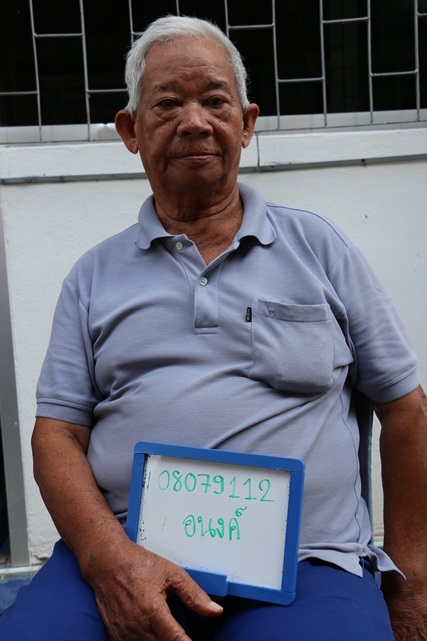 08079112
อนงค์